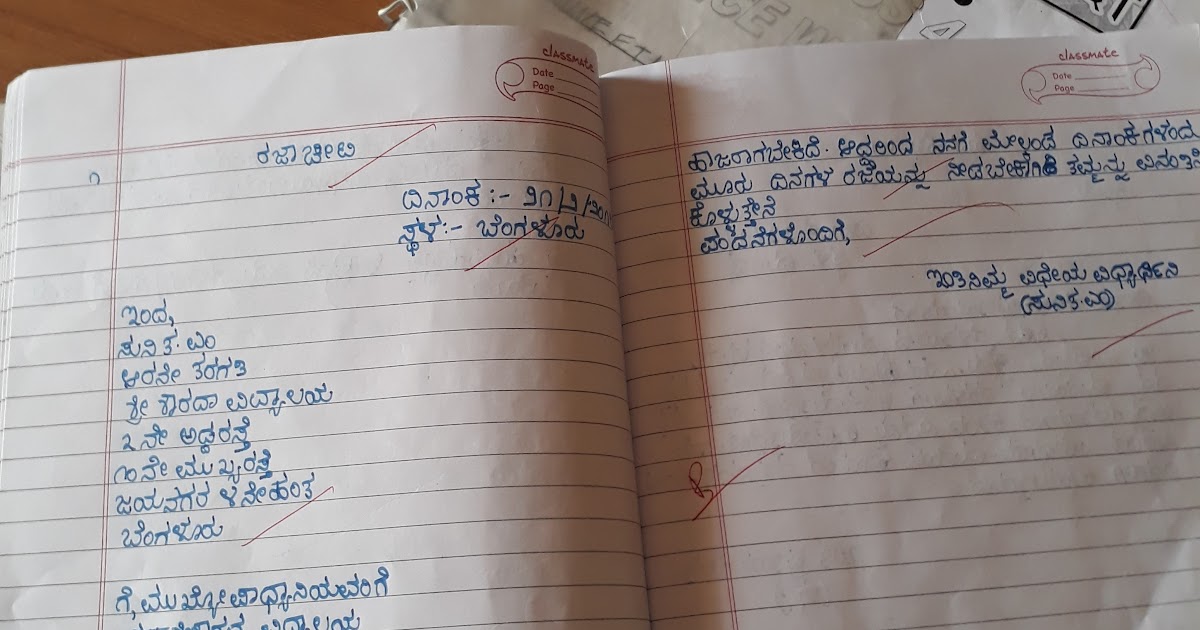 classmate
Date
Page
ರಜಾ ಚೀಟಿ
೧
ದಿನಾಂಕ :-
ಸ್ಥಳ :- ಬೆಂಗಳೂರು
ಇಂದ,
ಸುನಿತ. ಎಂ
ಆರನೇ ತರಗತಿ
ಶ್ರೀ ಶಾರದಾ ವಿದ್ಯಾಲಯ
೭ ನೇ ಅಡ್ಡರಸ್ತೆ
೧೦ ನೇ ಮುಖ್ಯರಸ್ತೆ
ಜಯನಗರ ೪ನೇ ಹಂತ
ಬೆಂಗಳೂರು
ಗೆ, ಮುಖ್ಯೋಪಾಧ್ಯಾನಿಯವರಿಗೆ
ವಿದ್ಯಾಲಯ
classmate
Date
Page
ಹಾಜರಾಗಬೇಕಿದೆ. ಆದ್ದರಿಂದ ನನಗೆ ಮೇಲ್ಕಂಡ ದಿನಾಂಕಗಳಂದ
ಮೂರು ದಿನಗಳ ರಜೆಯನ್ನು ನೀಡಬೇಕಾಗಿ ತಮ್ಮನ್ನು ವಿನಂತಿಸಿ
ಕೊಳ್ಳುತ್ತೇನೆ
ವಂದನೆಗಳೊಂದಿಗೆ,
ಇಂತಿನಿಮ್ಮ ವಿಧೇಯ ವಿಧ್ಯಾರ್ಥಿನಿ
(ಸುನಿತ.ಎಂ)